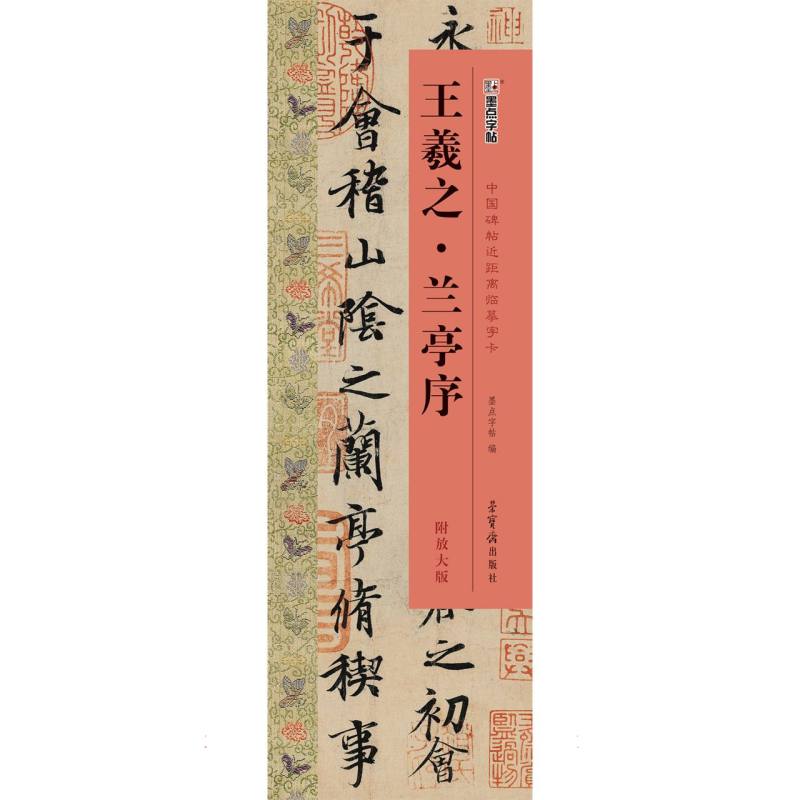 永
㞃之初會
于會稽山陰之蘭亭脩稧事
墨点字帖
中国碑帖近距离临摹字卡
墨点字帖 编
荣宝斋出版社
王羲之·兰亭序
附放大版